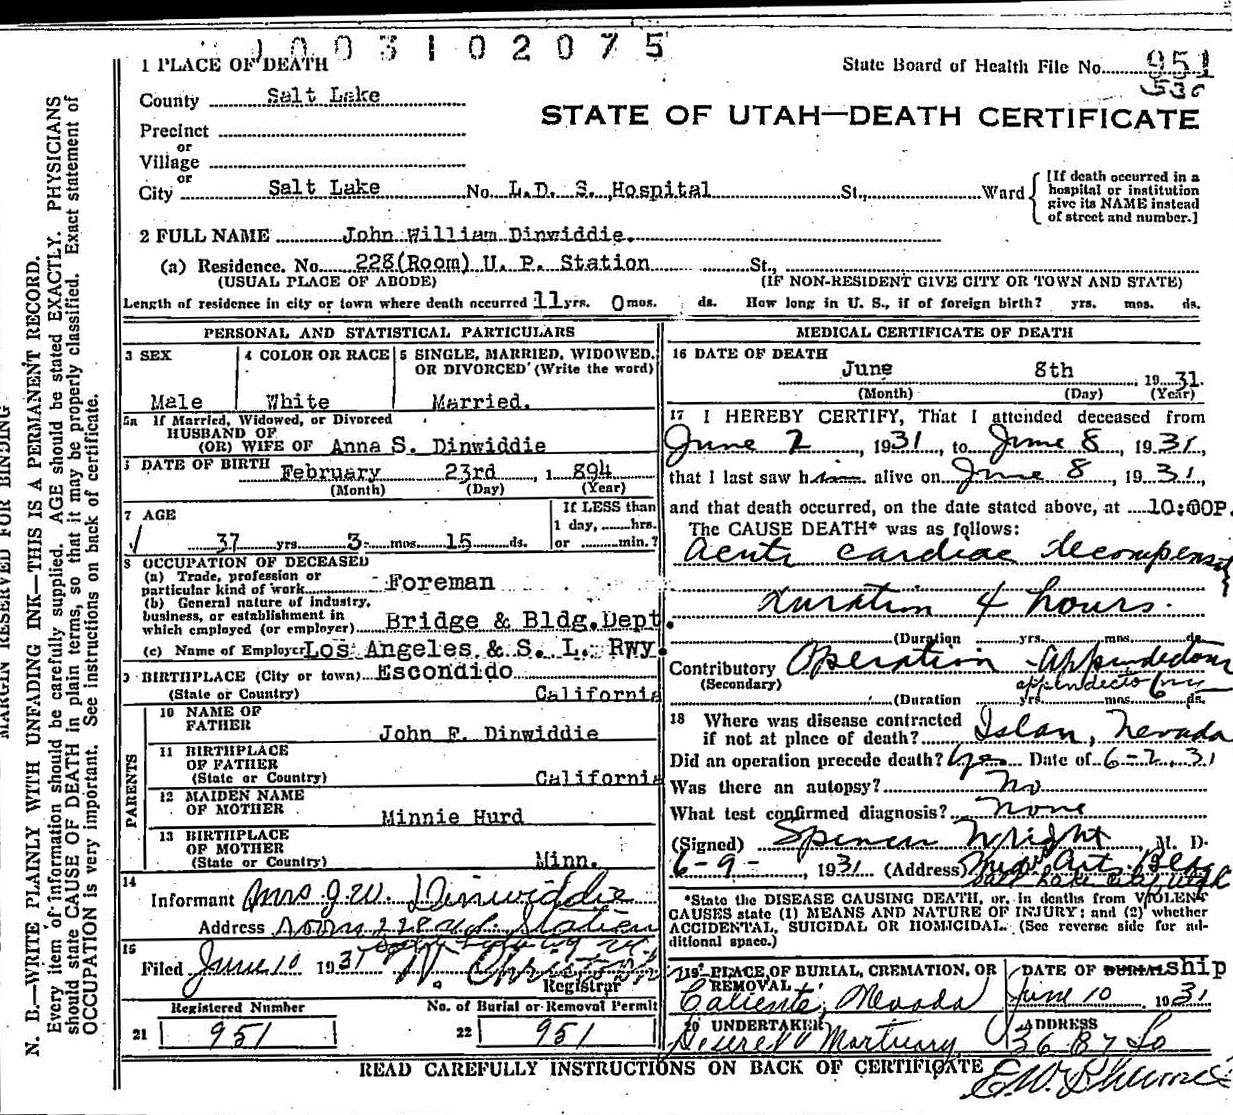 1003102075
1 PLACE OF DEATH
State Board of Health File No. 951
530
County Salt Lake
STATE OF UTAH—DEATH CERTIFICATE
Precinct
or
Village
or
City Salt Lake No. L.D. S. Hospital St., Ward
[If death occurred in a
hospital or institution
give its NAME instead
of street and number.]
2 FULL NAME John William Dinwiddie.
(a) Residence. No. 228(Room) U. P. Station St.,
(USUAL PLACE OF ABODE) (IF NON-RESIDENT GIVE CITY OR TOWN AND STATE)
Length of residence in city or town where death occurred 11 yrs. 0 mos. ds. How long in U. S., if of foreign birth? yrs. mos. ds.
PERSONAL AND STATISTICAL PARTICULARS
3 SEX 4 COLOR OR RACE 5 SINGLE, MARRIED, WIDOWED,
OR DIVORCED (Write the word)
Male White Married.
5a If Married, Widowed, or Divorced
HUSBAND OF
(OR) WIFE OF Anna S. Dinwiddie
DATE OF BIRTH February 23rd , 1 894
(Month) (Day) (Year)
7 AGE
If LESS than
1 day, hrs.
or min.?
37 yrs 3 mos 15 ds.
8 OCCUPATION OF DECEASED
(a) Trade, profession or
particular kind of work Foreman
(b) General nature of industry,
business, or establishment in
which employed (or employer) Bridge & Bldg.Dept.
(c) Name of Employer Los Angeles & S. L. Rwy.
9 BIRTHPLACE (City or town) Escondido
(State or Country) California
PARENTS
10 NAME OF
FATHER John F. Dinwiddie
11 BIRTHPLACE
OF FATHER
(State or Country) California
12 MAIDEN NAME
OF MOTHER Minnie Hurd
13 BIRTHPLACE
OF MOTHER
(State or Country) Minn.
14
Informant Mrs J.W. Dinwiddie
Address Room 228 U.P. Station
15
Filed June 10 1931 W. Christofn
Registrar
Registered Number No. of Burial or Removal Permit
21 951 22 951
MEDICAL CERTIFICATE OF DEATH
16 DATE OF DEATH
June 8th , 19 31.
(Month) (Day) (Year)
17 I HEREBY CERTIFY, That I attended deceased from
June 2, 1931, to June 8, 1931,
that I last saw him alive on June 8, 1931,
and that death occurred, on the date stated above, at 10:00P.
The CAUSE DEATH* was as follows:
Acute cardiac decompens
duration 4 hours.
(Duration yrs. mos. ds.
Contributory Operation - Appendectom
(Secondary) appendectomy
(Duration yrs. mos. ds.
18 Where was disease contracted
if not at place of death? Islan, Nevada
Did an operation precede death? Yes Date of 6-2-31
Was there an autopsy? No
What test confirmed diagnosis? None
(Signed) Spencer Wright, M. D.
6-9-, 1931 (Address) Med Art Bldg
Salt Lake City Utah
*State the DISEASE CAUSING DEATH, or, in deaths from VIOLENT
CAUSES state (1) MEANS AND NATURE OF INJURY; and (2) whether
ACCIDENTAL, SUICIDAL OR HOMICIDAL. (See reverse side for ad-
ditional space.)
19 PLACE OF BURIAL, CREMATION, OR
REMOVAL
Caliente, Nevada
DATE OF BURIAL ship
June 10 1931
20 UNDERTAKER
Deseret Mortuary
ADDRESS
36 E 7 So
READ CAREFULLY INSTRUCTIONS ON BACK OF CERTIFICATE
MARGIN RESERVED FOR BINDING
N. B.—WRITE PLAINLY WITH UNFADING INK—THIS IS A PERMANENT RECORD.
Every item of information should be carefully supplied. AGE should be stated EXACTLY. PHYSICIANS
should state CAUSE OF DEATH in plain terms, so that it may be properly classified. Exact statement of
OCCUPATION is very important. See instructions on back of certificate.